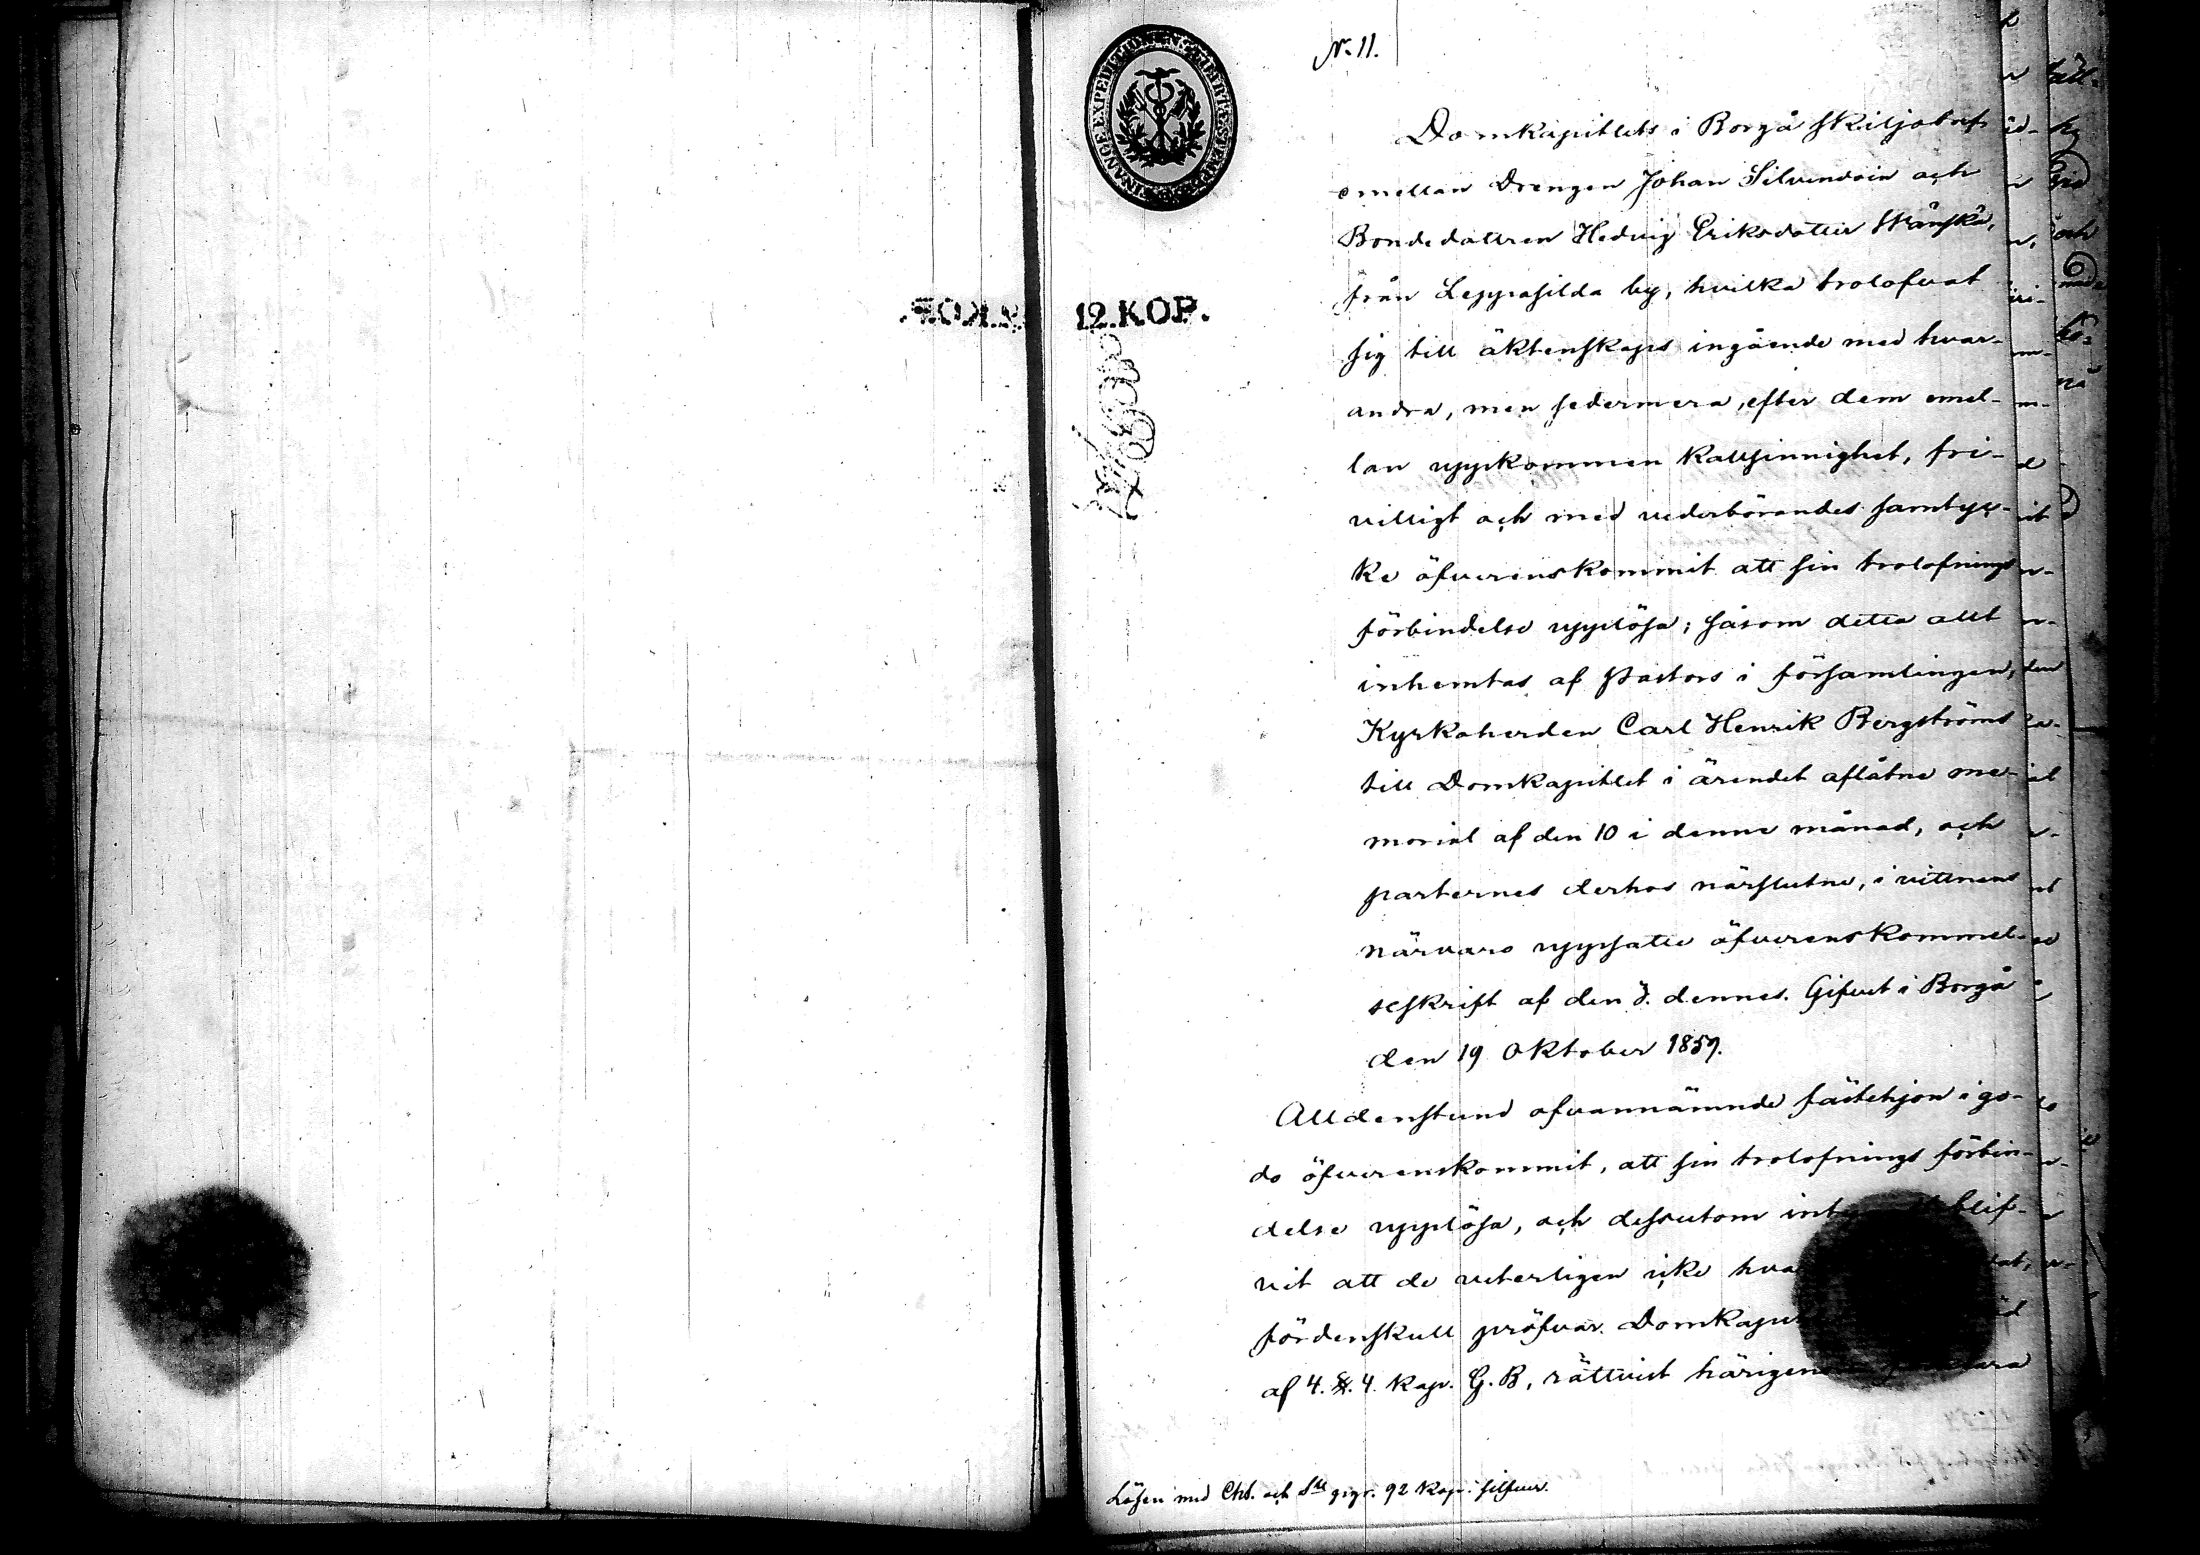 N. 11.
12. KOP.
Domkapitlets i Borgå skiljobref
emellan Drengen Johan Silvendoin och
Bondedottren Hedvig Eriksdotter
från Leppasilda by, hvilka trolofvat
sig till äktenskaps ingående med hvar-
andra, men sedermera, efter dem emel-
lan uppkommen kallsinnighet, fri-
villigt och med vederbörandes samtyc-
ke öfverenskommit att sin trolofnings
förbindelse upplösa; såsom detta allt
inhemtas af Pastors i församlingen,
Kyrkoherden Carl Henrik Bergströms
till Domkapitlet i ärendet aflåtne me-
morial af den 10 i denne månad, och
parternes derhos närslutne, i vittnens
närvaro uppsatte öfverenskommel-
seskrift af den dennes. Gifvet i Borgå
den 19 Oktober 1859.
Alldenstund ofvannämnde fästehjon i go-
do öfverenskommit, att sin trolofnings förbin-
delse upplösa, och dessutom blif-
vit att de veterligen icke
fördenskull pröfvar Domkapit
af 4. §. 4 Kap. G. B, rättvist härigenom
Lösen med Cht. och ppr. 92 kop. silfver.